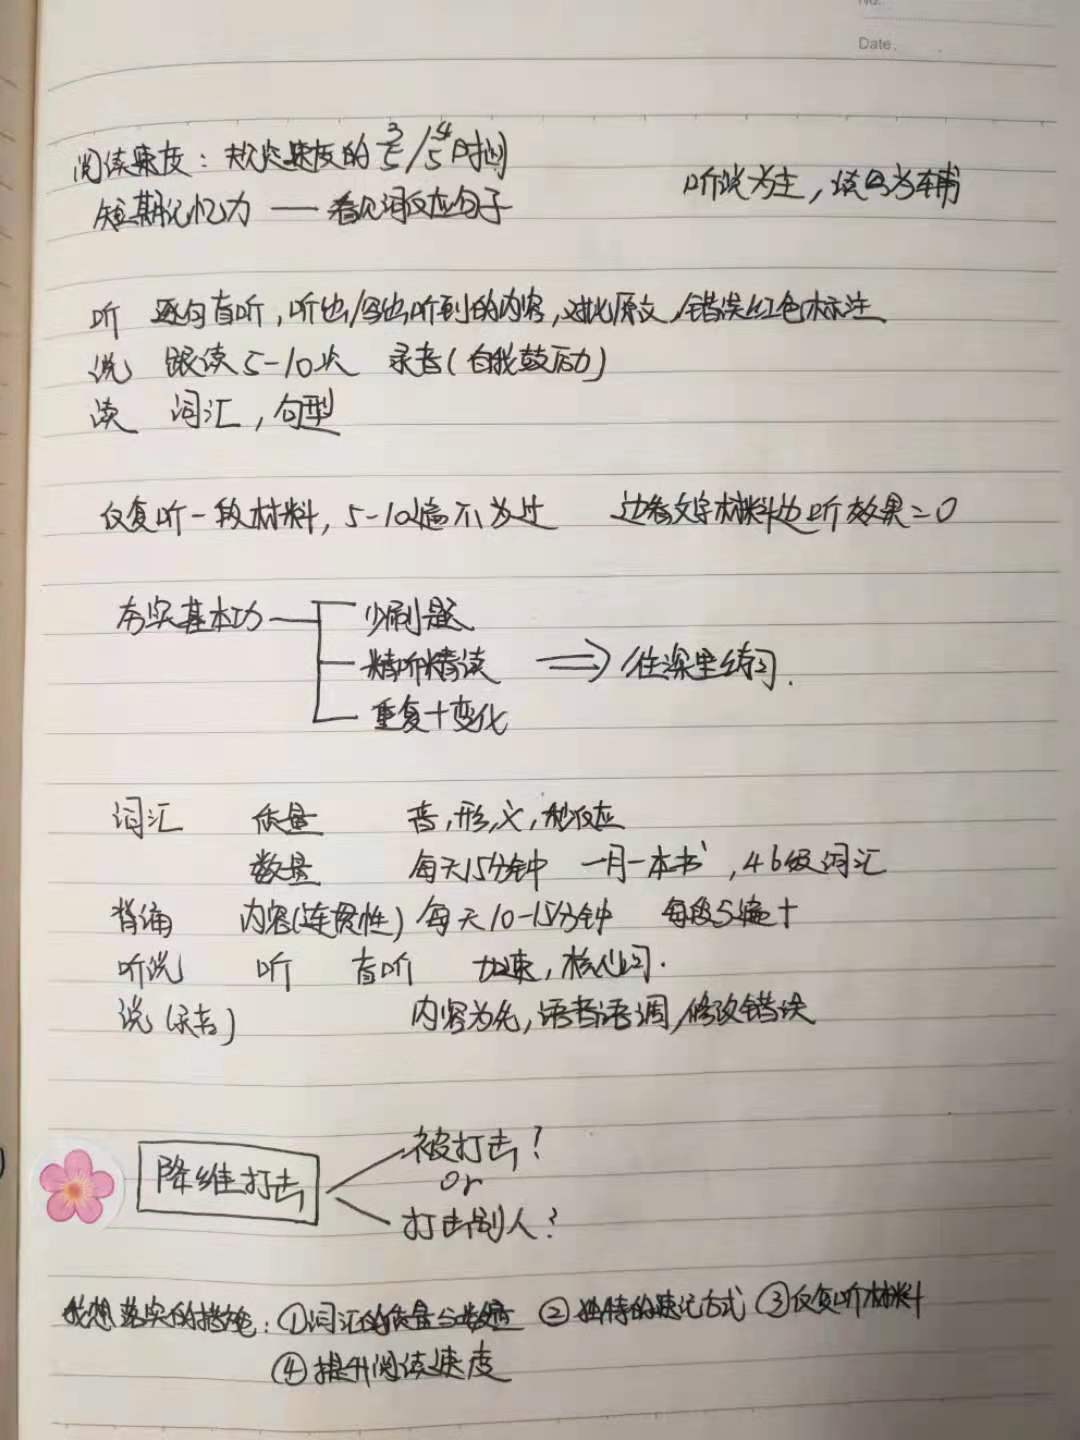 No.
Date.
阅读速度： 速度的3/5/4/5时间
听说为主，读写为辅
短期记忆力 — 看见词反应句子
听 逐句盲听，听也/写出听到的内容，对比原文，错误红色标注
说 跟读5-10次 录音（自我鼓励）
读 词汇，句型
反复听一段材料，5-10遍不为过 边看文字材料边听效果=0
夯实基本功
少刷题
精听精读 ⇒ 往深里练习.
重复+变化
词汇 质量 音，形，义，秒反应
数量 每天15分钟 一月一本书，46级词汇
背诵 内容(连贯性) 每天10-15分钟 每段5遍+
听说 听 盲听 加速，核心词.
说(录音) 内容为先，语音语调，修改错误
降维打击
被打击？
or
打击别人？
我想落实的措施：①词汇的质量与数量 ②独特的速记方式 ③反复听材料
④提升阅读速度